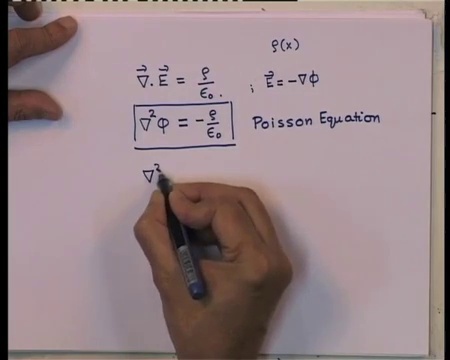 ρ(x)
∇⃗. E⃗ = ρ/ϵ₀. ; E⃗ = -∇Φ
∇²Φ = -ρ/ϵ₀ Poisson Equation
∇²